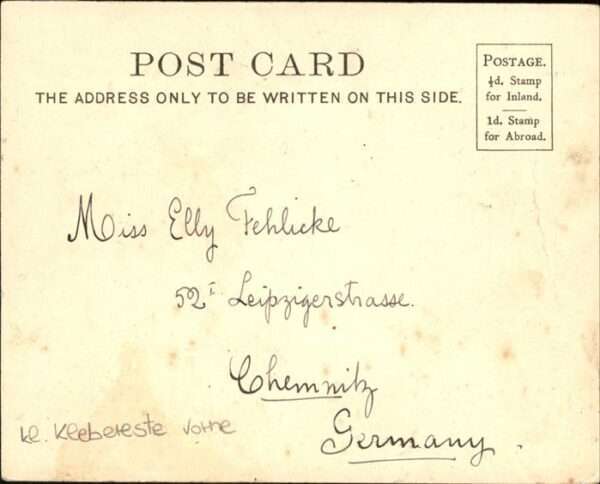 POST CARD
THE ADDRESS ONLY TO BE WRITTEN ON THIS SIDE.
POSTAGE.
½d. Stamp
for Inland.
1d. Stamp
for Abroad.
Miss Elly Fehlicke
52I Leipzigerstrasse.
Chemnitz
Germany.
kl. Klebereste vorne